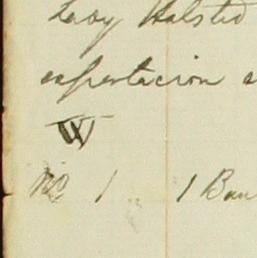 Leroy Halsted
esportacion
W
No 1 1 Bau